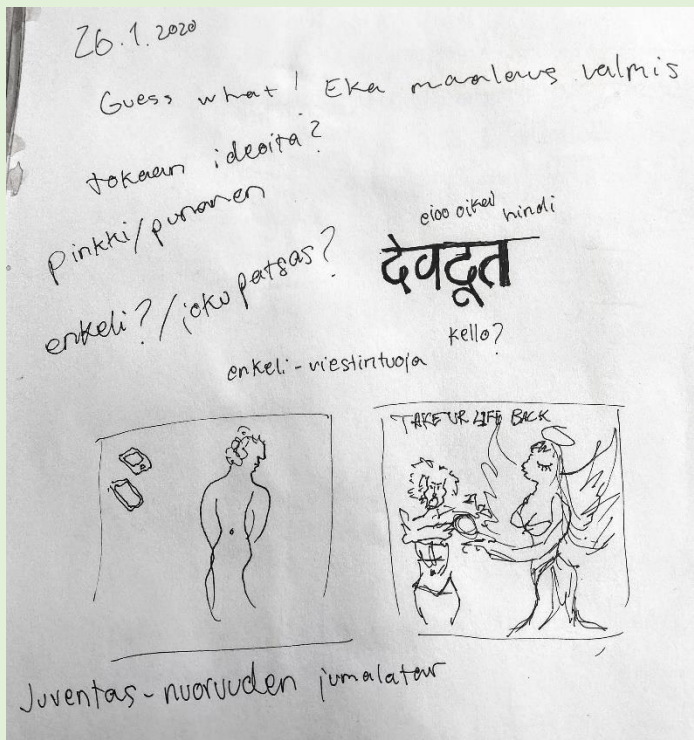 26.1.2020
Guess what! Eka maalaus valmis
tokaan ideoita?
pinkki/punanen
eioo oikee hindi
देवदूत
enkeli?/joku patsas?
kello?
enkeli-viestintuoja
TAKE UR LIFE BACK
Juventas-nuoruuden jumalatar